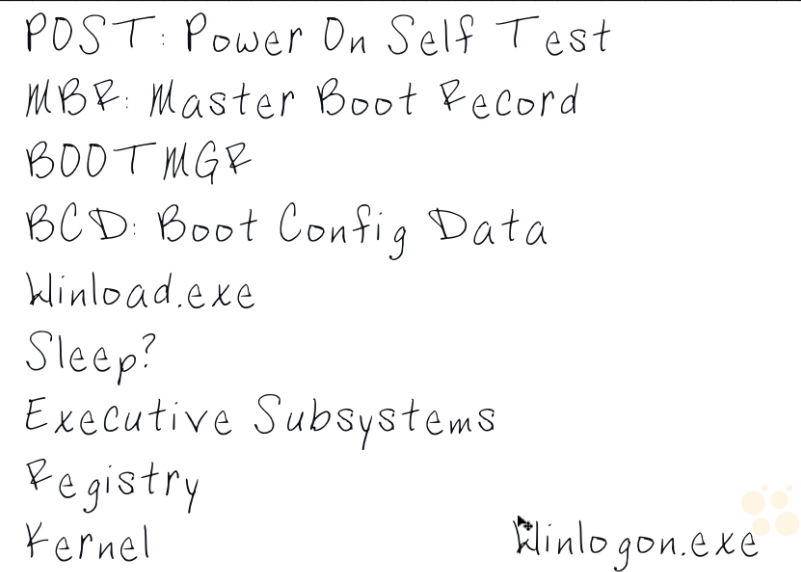 POST: Power On Self Test
MBR: Master Boot Record
BOOTMGR
BCD: Boot Config Data
Winload.exe
Sleep?
Executive Subsystems
Registry
Kernel
Winlogon.exe